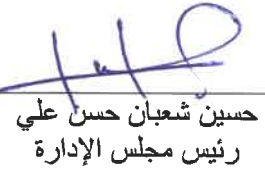 حسين شعبان حسن علي
رئيس مجلس الإدارة